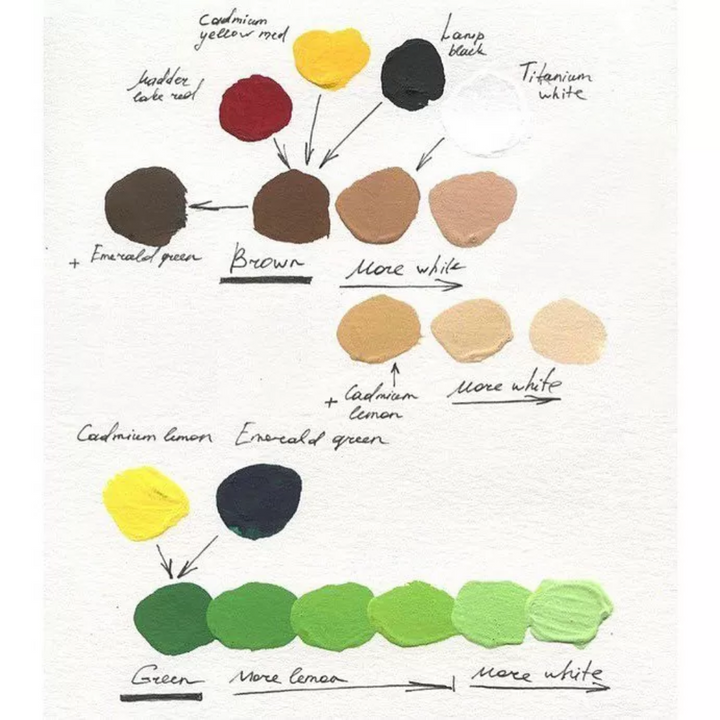 Cadmium
yellow med
Lamp
black
Madder
lake red
Titanium
white
+ Emerald green
Brown
More white
+ Cadmium
lemon
More white
Cadmium lemon
Emerald green
Green
More lemon
More white